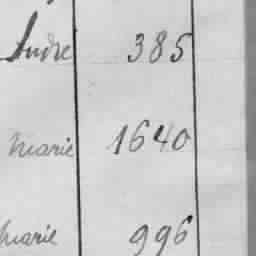 André 385
Marie 1640
Marie 996